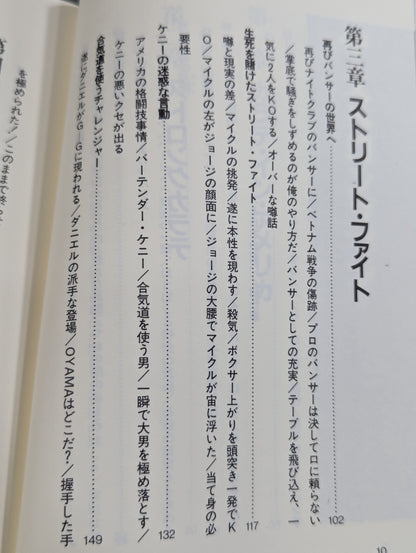 第三章 ストリート・ファイト
再びバンサーの世界へ……102
再びナイトクラブのバンサーに／ベトナム戦争の傷跡／プロのバンサーは決して口に頼らない
／掌底で騒ぎをしずめるのが俺のやり方だ／バンサーとしての充実／テーブルを飛び込え、一
気に2人をKOする／オーバーな噂話
生死を賭けたストリート・ファイト……117
噂と現実の差／マイケルの挑発／遂に本性を現わす／殺気／ボクサー上がりを頭突き一発でK
O／マイケルの左がジョージの顔面に／ジョージの大腰でマイケルが宙に浮いた／当て身の必
要性
ケニーの迷惑な言動……132
アメリカの格闘技事情／バーテンダー・ケニー／合気道を使う男／一瞬で大男を極め落とす／
ケニーの悪いクセが出る
合気道を使うチャレンジャー……149
遂にダニエルがG—Gに現われる／ダニエルの派手な登場／OYAMAはどこだ？／握手した手
を極められた／このままで終
10